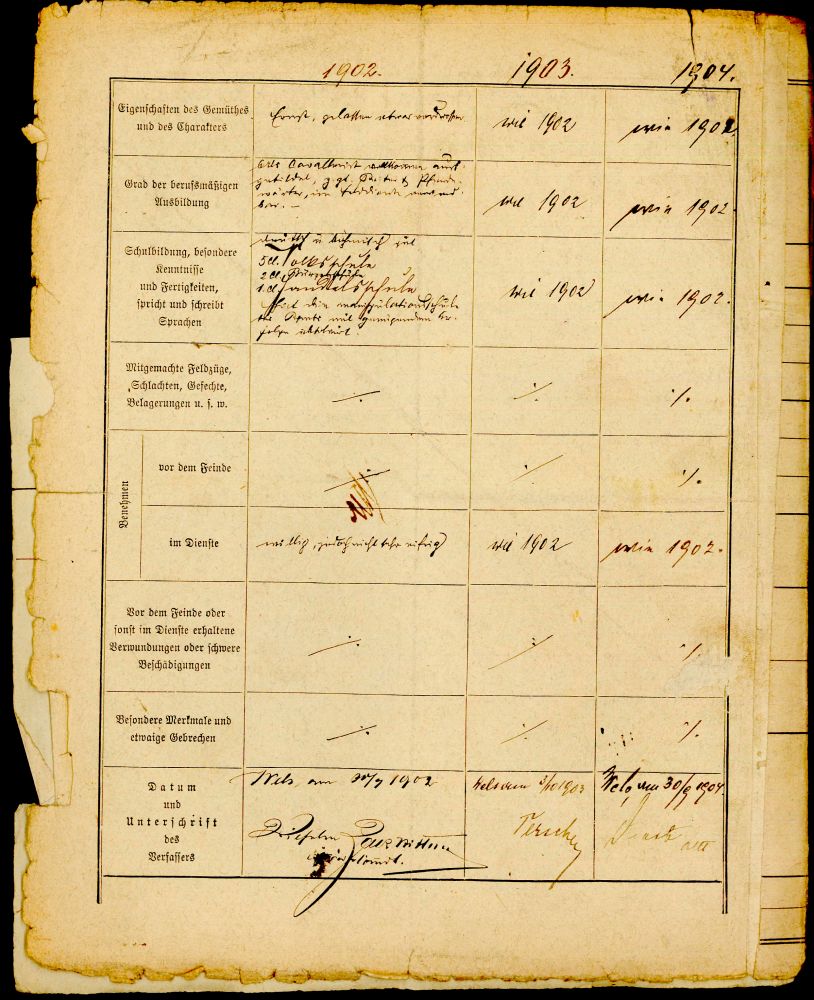 1902. 1903. 1904.
Eigenschaften des Gemüthes
und des Charakters
Ernst, gelassen etwas
wie 1902
wie 1902
Grad der berufsmäßigen
Ausbildung
Als Cavallerist vollkommen aus-
gebildet,
wärter, im Felddienste verwend-
bar.
wie 1902
wie 1902.
Schulbildung, besondere
Kenntnisse
und Fertigkeiten,
spricht und schreibt
Sprachen
deutsch u böhmisch gut
5 Cl. Volksschule
2 Cl. Bürgerschule
1. Cl. Handelsschule
Hat die Manipulationsschule
mit genügendem Er-
folge absolvirt.
wie 1902
wie 1902.
Mitgemachte Feldzüge,
Schlachten, Gefechte,
Belagerungen u. s. w.
./. ./. ./.
Benehmen
vor dem Feinde
./. ./. ./.
im Dienste
willig, jedoch nicht sehr eifrig
wie 1902
wie 1902.
Vor dem Feinde oder
sonst im Dienste erhaltene
Verwundungen oder schwere
Beschädigungen
./. ./. ./.
Besondere Merkmale und
etwaige Gebrechen
./. ./. ./.
Datum
und
Unterschrift
des
Verfassers
Wels, am 1902
Wels am 1903
Wels am 30/9 1904